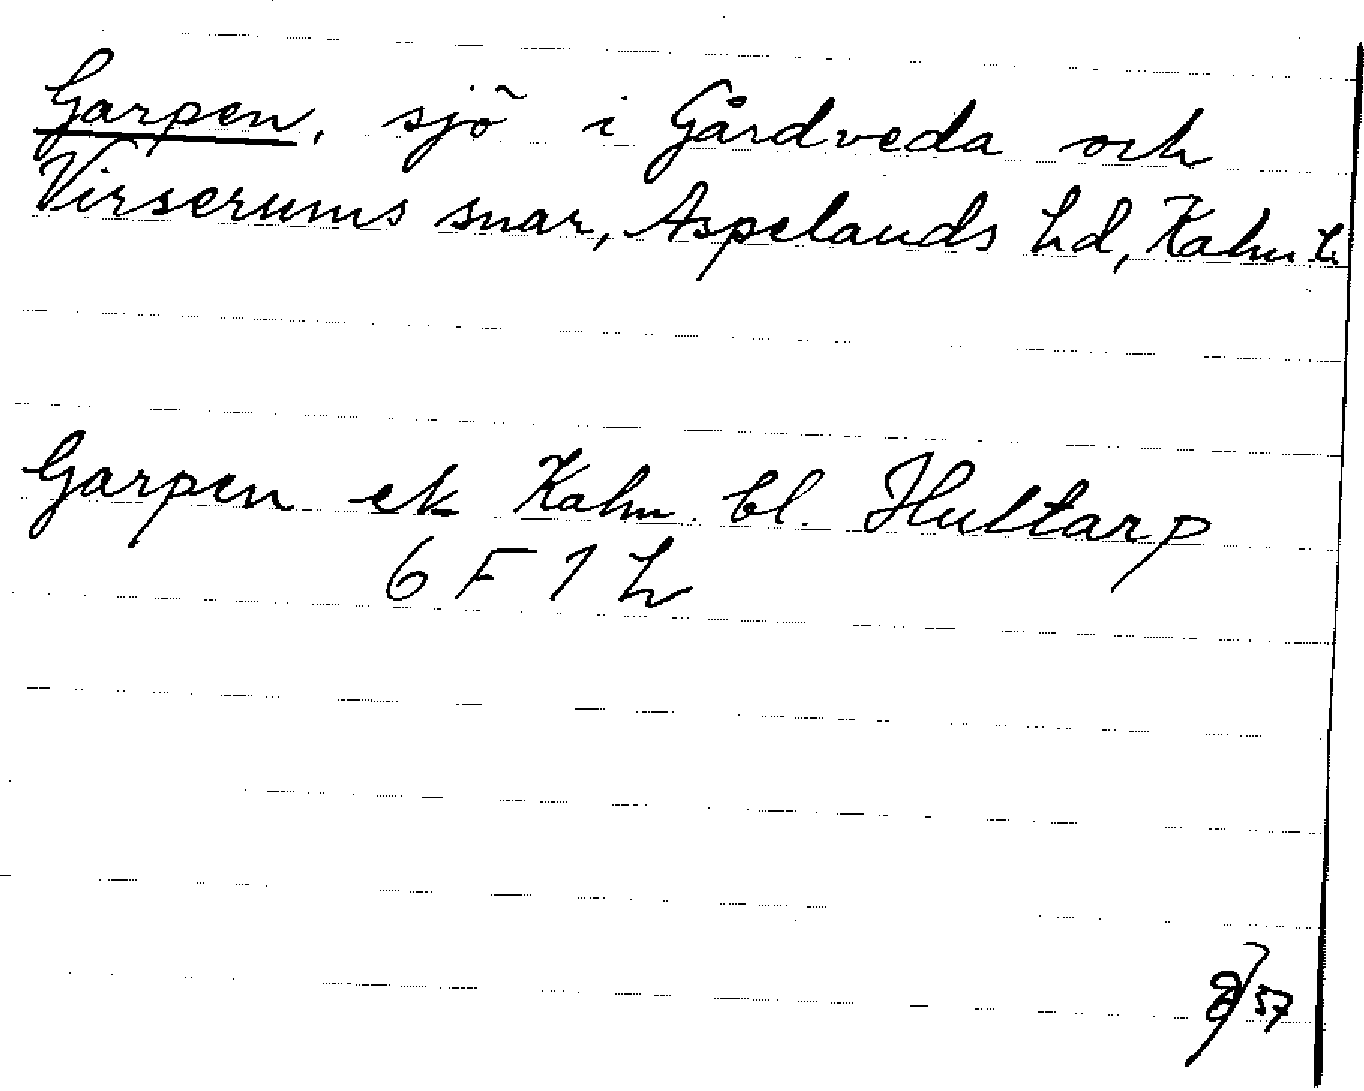 Garpen, sjö i Gårdveda och
Virserums snar, Aspelands hd, Kalm L.
Garpen ek Kalm. bl. Hultarp
6 F 1 h
57